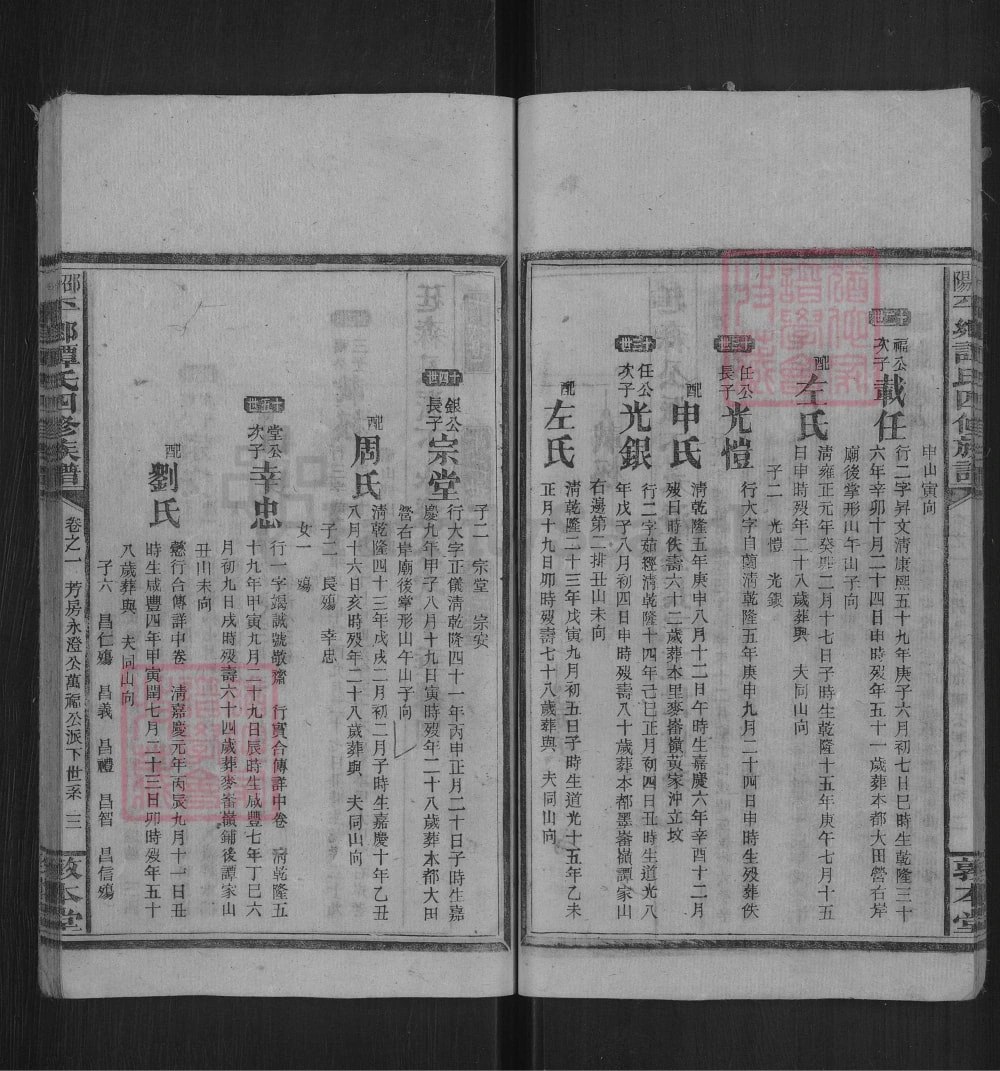 申山寅向
十二世
福公
次子
戴任
行二字昇文清康熙五十九年庚子六月初七日巳時生乾隆三十
六年辛卯十月二十四日申時歿年五十一歲葬本都大田營右岸
廟後掌形山午山子向
配
左氏
清雍正元年癸卯二月十七日子時生乾隆十五年庚午七月十五
日申時歿年二十八歲葬與 夫同山向
子二 光愷 光銀
十三世
任公
長子
光愷
行大字自蘭清乾隆五年庚申九月二十四日申時生歿葬佚
配
申氏
清乾隆五年庚申八月十二日午時生嘉慶六年辛酉十二月
歿日時佚壽六十二歲葬本里麥畬嶺黃家沖立墳
十三世
任公
次子
光銀
行二字茹經清乾隆十四年己巳正月初四日丑時生道光八
年戊子八月初四日申時歿壽八十歲葬本都墨畬嶺譚家山
右邊第二排丑山未向
配
左氏
清乾隆二十三年戊寅九月初五日子時生道光十五年乙未
正月十九日卯時歿壽七十八歲葬與 夫同山向
子二 宗堂 宗安
十四世
銀公
長子
宗堂
行大字正儀清乾隆四十一年丙申正月二十日子時生嘉
慶九年甲子八月十九日寅時歿年二十八歲葬本都大田
營右岸廟後掌形山午山子向
配
周氏
清乾隆四十三年戊戌二月初二月子時生嘉慶十年乙丑
八月十六日亥時歿年二十八歲葬與 夫同山向
子二 長殤 幸忠
女一 殤
十五世
堂公
次子
幸忠
行一字錫誠號敬齋 行實合傳詳中卷 清乾隆五
十九年甲寅九月二十九日辰時生咸豐七年丁巳六
月初九日戌時歿壽六十四歲葬麥畬嶺鋪後譚家山
丑山未向
配
劉氏
懿行合傳詳中卷 清嘉慶元年丙辰九月十一日丑
時生咸豐四年甲寅閏七月二十三日卯時歿年五十
八歲葬與 夫同山向
子六 昌仁殤 昌義 昌禮 昌智 昌信殤
邵一鄉譚氏四修族譜
卷之一 芳房永澄公萬福公派下世系 三
敦本堂